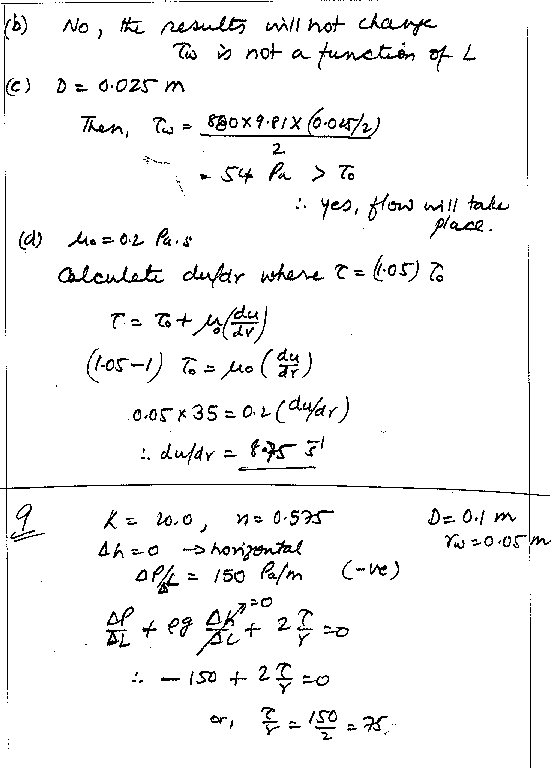 (b) No, the results will not change
τw is not a function of L
(c) D = 0.025 m
Then, τw = 880x9.81x(0.025/2)
2
= 54 Pa > τ0
∴ yes, flow will take
place.
(d) μ0 = 0.2 Pa.s
Calculate du/dr where τ = (1.05) τ0
τ = τ0 + μ0 (du/dr)
(1.05-1) τ0 = μ0 (du/dr)
0.05 x 35 = 0.2 (du/dr)
∴ du/dr = 8.75 s⁻¹
9 K = 20.0, n = 0.575 D = 0.1 m
Δh = 0 → horizontal rw = 0.05 m
ΔP/ΔL = 150 Pa/m (-ve)
ΔP/ΔL + ρg Δh/ΔL →=0 + 2 τ/r = 0
∴ - 150 + 2 τ/r = 0
or, τ/r = 150/2 = 75.